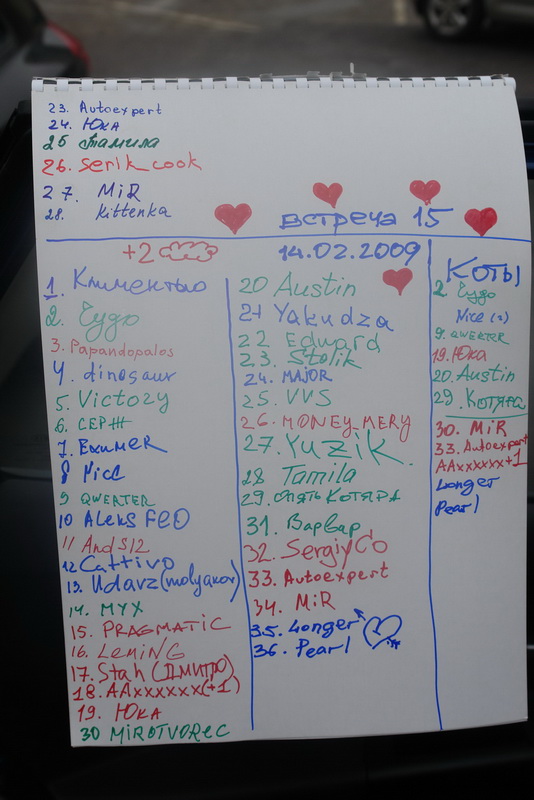 23. Autoexpert
24. Юка
25 Тамила
26. Serik_cook
27. MiR
28. Kittenka
встреча 15
+2
14.02.2009
1. Климентью
2. Гудо
3. Papandopalos
4. dinosaur
5. Victozy
6. СЕРЖ
7. Бхимек
8 Nice
9 QWERTER
10 Aleks FEO
11 AndS12
12 Cattivo
13. Udavz (molyakov)
14. МУХ
15. PRAGMATIC
16. LemiNG
17. Stah (ДМИТРО)
18. AAxxxxxx(+1)
19. Юка
30 MiROTVOREC
20 Austin
21 Yakudza
22 Edward
23. Stolik
24. MAJOR
25. VVS
26. MONEY_MERY
27. Yuzik.
28 Tamila
29. опять КОТЯРА
31. Варвар
32. SergiyCo
33. Autoexpert
34. MiR
35. Longer
36. Pearl
Коты
2. Гудо
Nice (+)
9. QWERTER
19. Юка
20. Austin
29. КОТЯРА
30. MiR
33. Autoexpert
AAxxxxxx+1
Longer
Pearl